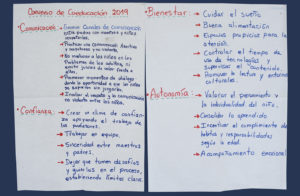 Consenso de Coeducación 2019
• Comunicación:
• Generar Canales de Comunicación
entre padres con maestros y niños
respetables.
• Practicar una comunicación Asertiva
y respetuosa y no violenta.
• No involucrar a los niños en los
Problemas de los adultos, ni
emitir juicios de valor frente a
ellos.
• Promover momentos de diálogo
dando la oportunidad a que los niños
se expresen sin juzgarlos.
• Invitar al respeto y la comunicación
no violenta entre los niños.
• Confianza:
• Crear un clima de confianza
apoyando el trabajo de
los profesores.
• Trabajar en equipo.
• Sinceridad entre maestros
y padres.
• Dejar que tomen desafíos
y guiarlos en el proceso,
estableciendo límites claros.
• Bienestar:
• Cuidar el sueño
• Buena alimentación
• Espacios propicios para la
atención.
• Controlar el tiempo de
uso de tecnologías
Supervisar el contenido.
• Promover la lectura y entornos
culturales.
• Autonomía:
• Valorar el pensamiento y
la individualidad del niño.
• Consolidar lo aprendido
• Incentivar el cumplimiento de
hábitos y responsabilidades
según la edad.
• Acompañamiento emocional